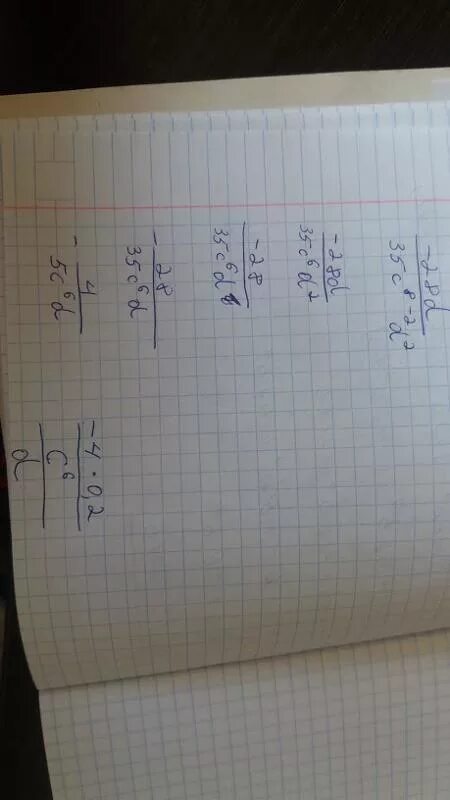 -28d
35c⁸⁻²d²
-28d
35c⁶d²
-28
35c⁶d
- 28
35c⁶d
- 4
5c⁶d
-4·0,2
c⁶
d